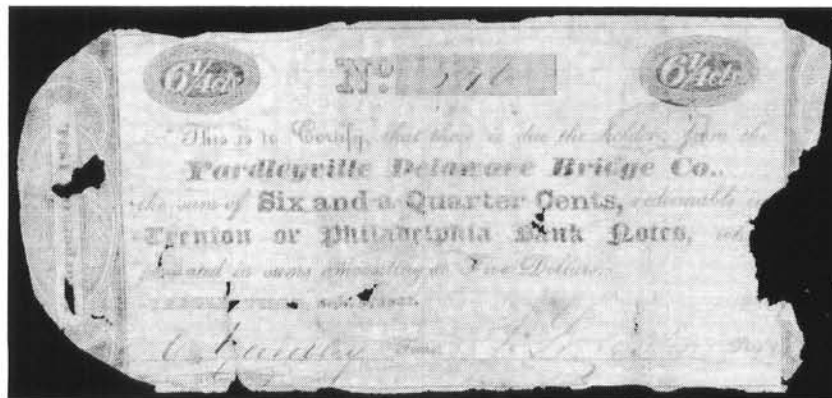 6¼cts. No. 6¼cts.
This is to Certify, that there is due the holder, from the
Yardleyville Delaware Bridge Co.
the sum of Six and a Quarter Cents, redeemable in
Trenton or Philadelphia Bank Notes,
presented in sums amounting to Five Dollars.
Yardley